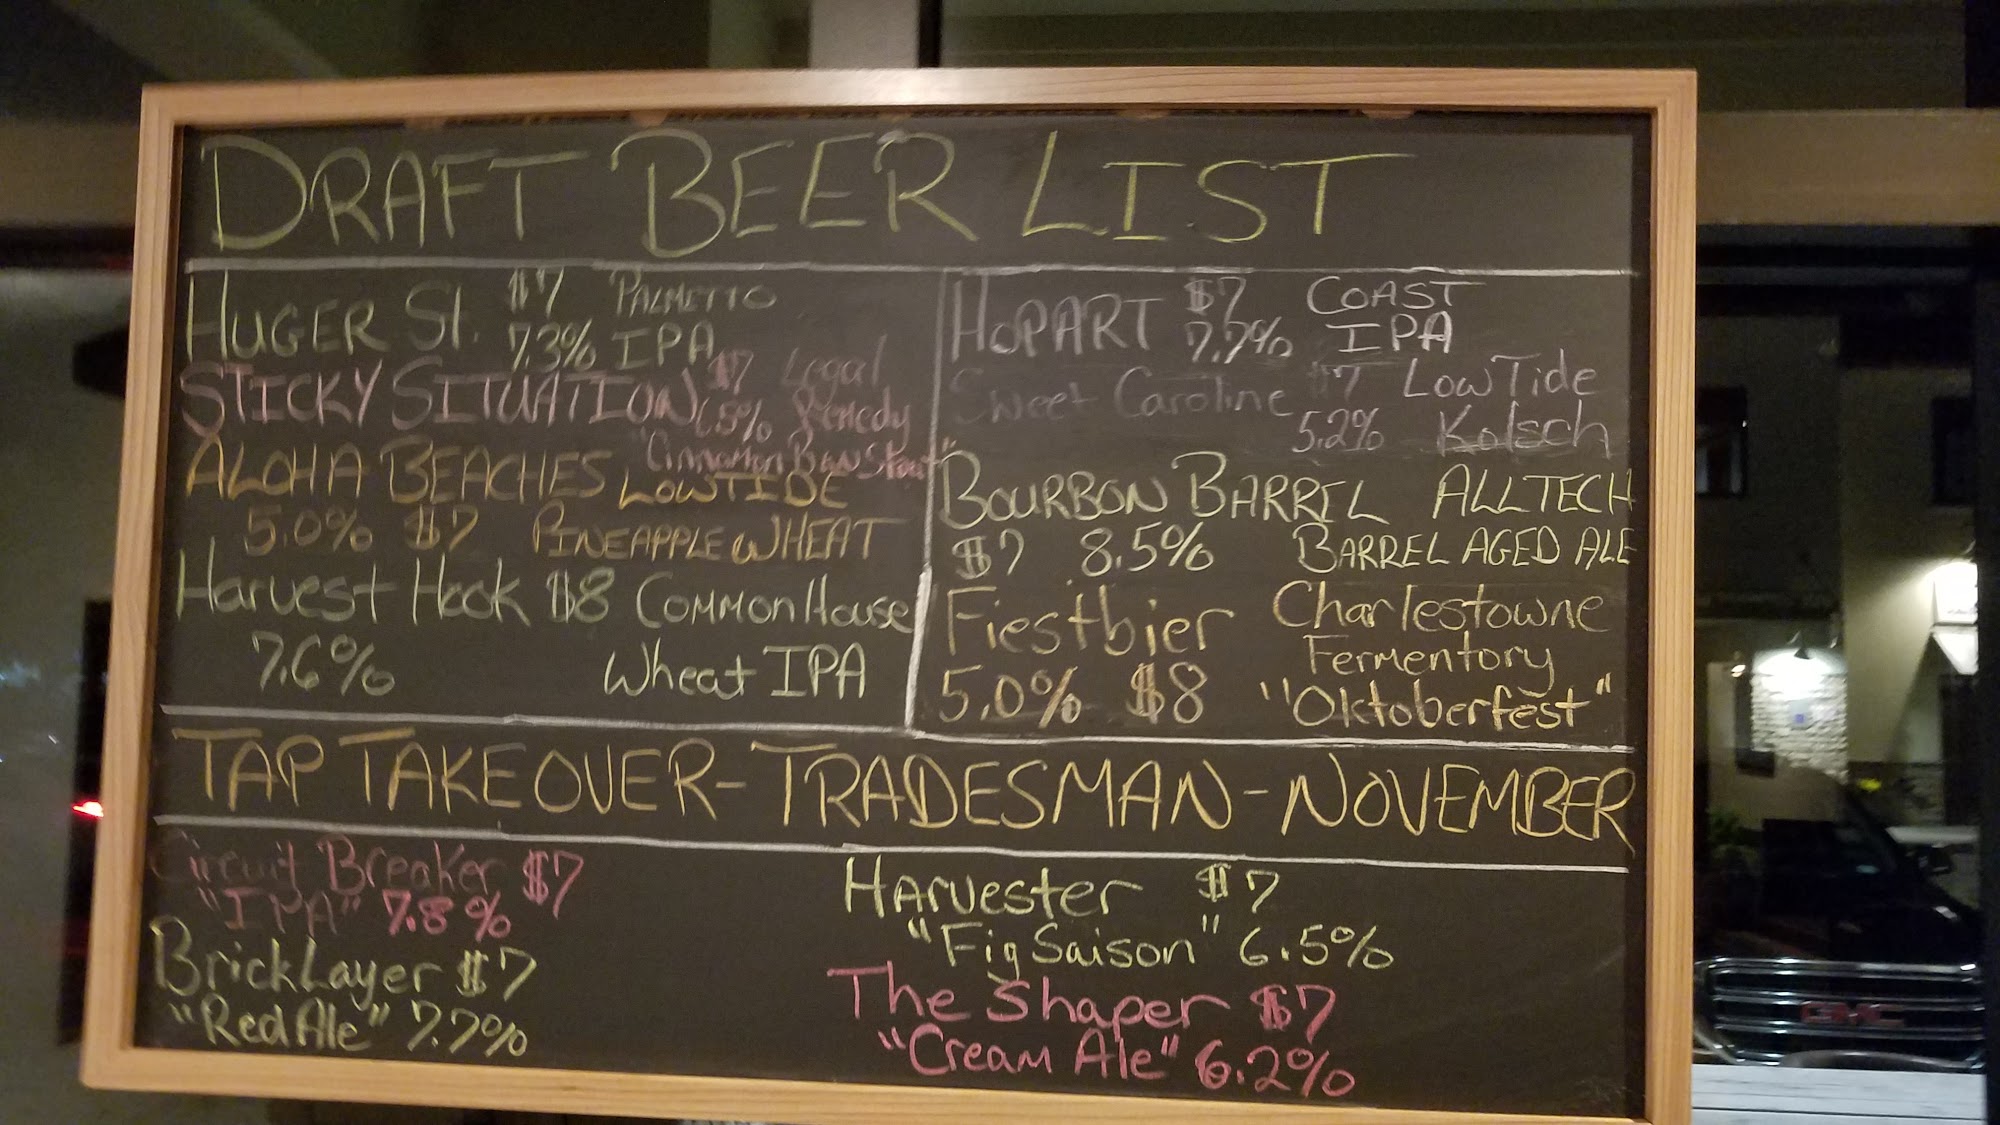 DRAFT BEER LIST
HUGER St. $7 PALMETTO
7.3% IPA
STICKY SITUATION $7 Legal
6.5% Remedy
"Cinnamon Bun Stout"
ALOHA BEACHES LOWTIDE
5.0% $7 PINEAPPLE WHEAT
Harvest Hook $8 COMMON House
7.6% Wheat IPA
HOPART $7 COAST
7.7% IPA
Sweet Caroline $7 LowTide
5.2% Kolsch
BOURBON BARREL ALLTECH
$7 8.5% BARREL AGED ALE
Fiestbier Charlestowne
Fermentory
5.0% $8 "Oktoberfest"
TAP TAKEOVER - TRADESMAN - NOVEMBER
Circuit Breaker $7
"IPA" 7.8%
BrickLayer $7
"Red Ale" 7.7%
HArvester $7
"Fig Saison" 6.5%
The Shaper $7
"Cream Ale" 6.2%
GMC